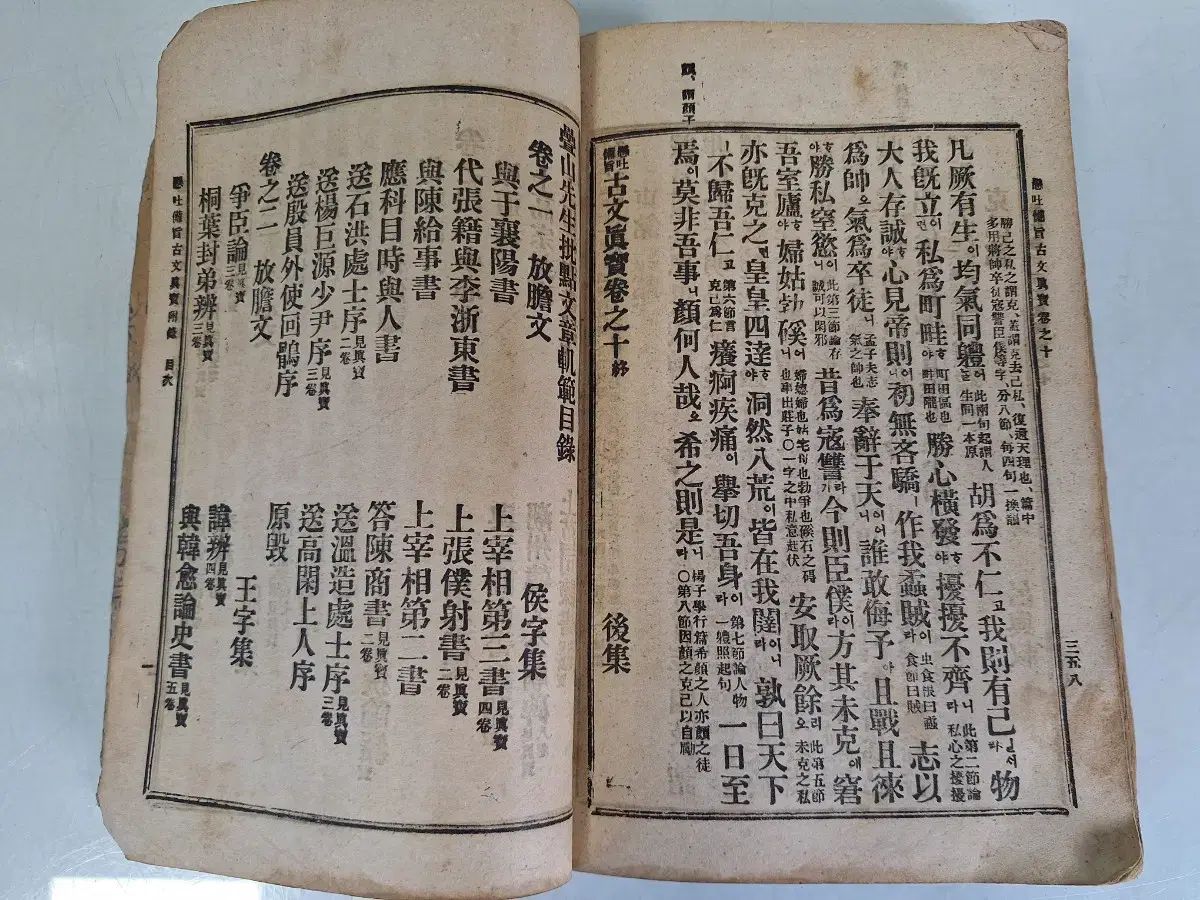 懸吐備旨古文眞寶卷之十 三五八
勝己之私之謂克、蓋謂克去己私、復還天理也、篇中
多用將帥卒徒寇讐臣僕等字、分八節、每四句一換韻
凡厥有生이均氣同軆어늘 此兩句起謂人生同一本原 胡爲不仁고我則有己라 物
我旣立이면私爲町畦 町田區也畦田隴也 勝心橫發 擾擾不齊라니 此第二節論私心之擾擾 志以
大人存誠 心見帝則이니初無吝驕 作我蟊賊이라 虫食根曰蟊食節曰賊
爲帥오氣爲卒徒니 孟子夫志氣之帥也 奉辭于天이어니誰敢侮予 且戰且徠
勝私窒慾이니 此第三節論存誠可以閑邪 昔爲寇讐라今則臣僕이라方其未克애窘
吾室廬 婦姑勃磎 安取厥餘리오 此第五節未克之私
亦旣克之면皇皇四達 洞然八荒이皆在我闥이라孰曰天下
不歸吾仁고 第六節言克己爲仁 癢疴疾痛이擧切吾身이라 第七節論人物一軆照起句 一日至
焉이莫非吾事니顔何人哉오希之則是라 楊子學行篇希顔之人亦顔之徒○第八節因顔之克己以自勵
懸吐備旨 古文眞寶卷之十 終 後集
疊山先生批點文章軌範目錄
卷之一 放膽文 侯字集
與于襄陽書 上宰相第三書 見眞寶四卷
代張籍與李浙東書 上張僕射書 見眞寶二卷
與陳給事書 上宰相第二書
應科目時與人書 答陳商書 見眞寶二卷
送石洪處士序 見眞寶二卷 送溫造處士序 見眞寶三卷
送楊巨源少尹序 見眞寶三卷 送高閑上人序
送殷員外使回鶻序 原毁
卷之二 放膽文 王字集
爭臣論 見眞寶三卷 諱辨 見眞寶四卷
桐葉封弟辨 見眞寶三卷 與韓愈論史書 見眞寶五卷
懸吐備旨古文眞寶附錄 目次 一